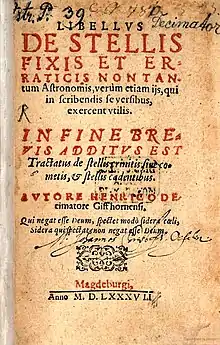 Astr. P. 39
Decimator
LIBELLVS
DE STELLIS
FIXIS ET ER-
RATICIS NON TAN-
tum Astronomis, verùm etiam ijs, qui
in scribendis se versibus,
exercent vtilis.
IN FINE BRE-
VIS ADDITVS EST
Tractatus de stellis crinitis siue co-
metis, & stellis cadentibus.
AVTORE HENRICO De-
cimatore Giffhornensi.
Qui negat esse Deum, spectet modò sidera cœli,
Sidera qui spectat, non negat esse Deum.
Magdeburgi,
Anno M. D. LXXXVII.